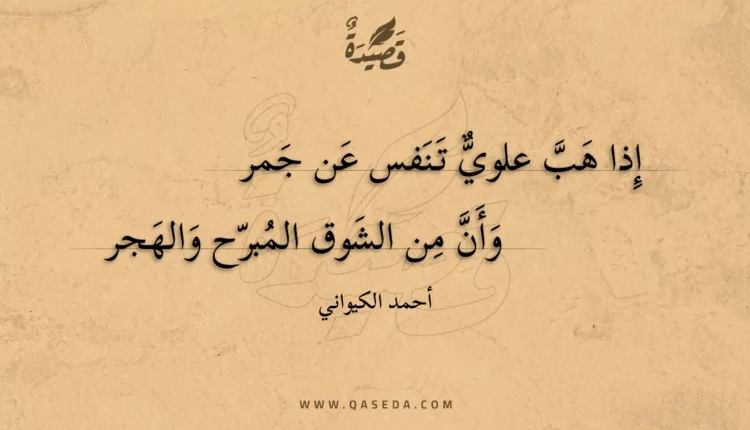 قَصِيْدَةٌ
إِذا هَبَّ علويٌّ تَنَفس عَن جَمر
وَأَنَّ مِن الشَوق المُبرّح وَالهَجر
أحمد الكيواني
WWW.QASEDA.COM